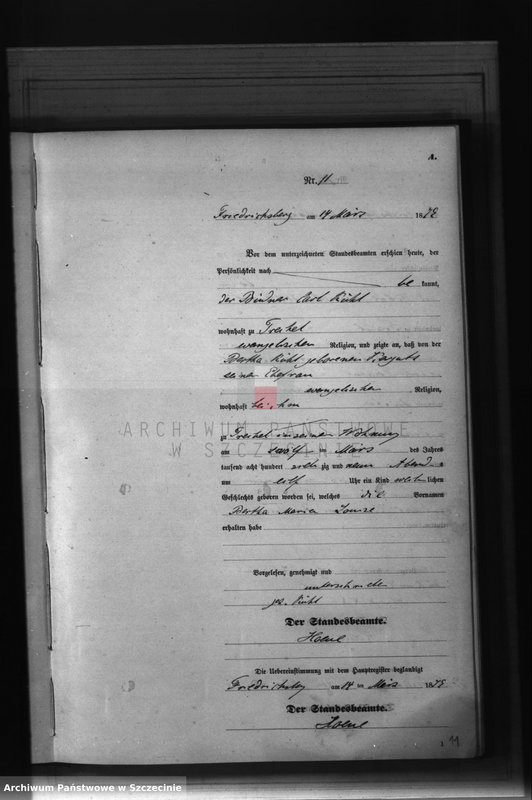 A.
Nr. 11
am 14 März 1879
Vor dem unterzeichneten Standesbeamten erschien heute, der
Persönlichkeit nach be kannt,
der Büdner Carl
wohnhaft zu
evangelischen Religion, und zeigte an, daß von der
Bertha geborenen
seiner Ehefrau
evangelischen Religion,
wohnhaft bei ihm
ARCHIWUM PAŃSTWOWE
W SZCZECINIE
zu in seiner Wohnung
am zwölf ten März des Jahres
tausend acht hundert zig und neun Abend s
um elf Uhr ein Kind weiblichen
Geschlechts geboren worden sei, welches die Vornamen
Bertha Marie Louise
erhalten habe
Vorgelesen, genehmigt und
unterschrieben
gez.
Der Standesbeamte.
Die Uebereinstimmung mit dem Hauptregister beglaubigt
am 14 ten März 1879
Der Standesbeamte.
1 11
Archiwum Państwowe w Szczecinie